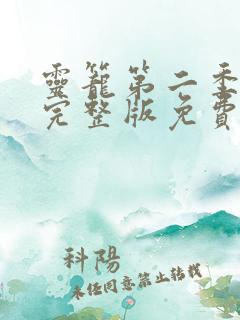 靈籠第二季
完整版免費
科陽
未经同意禁止转载